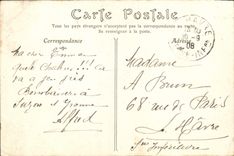 Carte Postale
Tous les pays étrangers n'acceptent pas la correspondance au recto.
Se renseigner à la poste.
Correspondance
Adresse
Quel Chaleur !!! Ca
va à peu près
Suzon et Yvonne
Alfred
Madame
A Brun
68 rue de Paris
Le Hâvre
Sne Inférieure
08